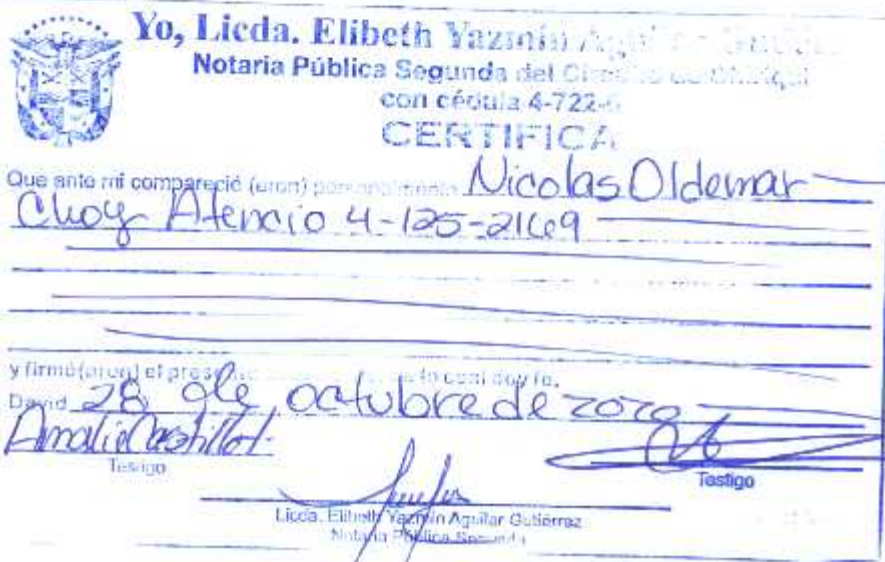 Yo, Licda. Elibeth Yazmin Aguilar
Notaria Pública Segunda del Circuito de Chiriquí
con cédula 4-722-6
CERTIFICA
Que ante mi compareció (eron) personalmente Nicolas Oldemar
Choy Atencio 4-125-2169
y firmó(aron) el presente de lo cual doy fe.
David 28 de octubre de 2020
Amalia Castillo
Testigo
Testigo
Licda. Elibeth Yazmin Aguilar Gutiérrez
Notaria Pública Segunda